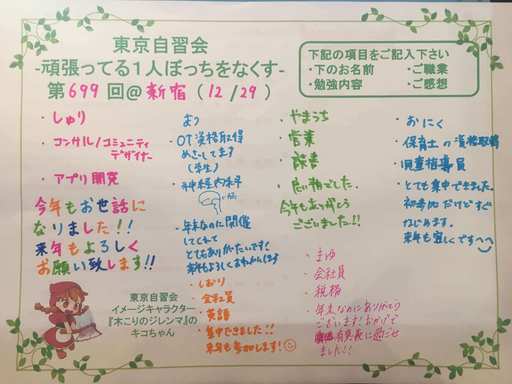 東京自習会
-頑張ってる1人ぼっちをなくす-
第699回@新宿(12/29)
下記の項目をご記入下さい
・下のお名前 ・ご職業
・勉強内容 ・ご感想
・しゅり
・コンサル/コミュニティ
デザイナー
・アプリ開発
今年もお世話に
なりました!!
来年もよろしく
お願い致します!!
東京自習会
イメージキャラクター
『木こりのジレンマ』の
キコちゃん
・OT資格取得
めざしてます
(学生)
・年末なのに開催
してくれて
とてもありがたいです!
来年もよろしくおねがいします
・しおり
・会社員
・英語
・集中できました!!
来年も参加します!
・やまうち
・営業
・読書
今年もありがとう
ございました!!
・まゆ
・会社員
・税務
・年末なのにありがとう
ございます!おかげで
有意義に過ごせ
ました!!
・おにく
・保育士の資格取得
・児童指導員
・とても集中できました。
初参加だけどすぐ
なじめます。
来年も宜しくです